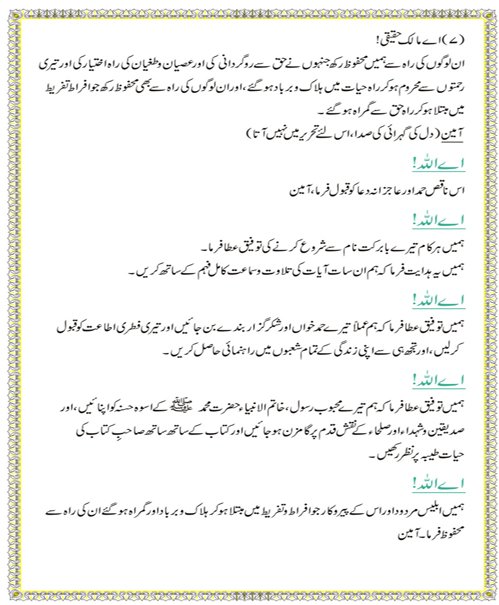 (۷) اے مالک حقیقی!
ان لوگوں کی راہ سے ہمیں محفوظ رکھ جنہوں نے حق سے روگردانی کی اور عصیان وطغیان کی راہ اختیار کی اور تیری
رحمتوں سے محروم ہوکر راہ حیات میں ہلاک و برباد ہوگئے، اور ان لوگوں کی راہ سے بھی محفوظ رکھ جو افراط تفریط
میں مبتلا ہوکر راہ حق سے گمراہ ہوگئے۔
آمین (دل کی گہرائی کی صدا، اس لئے تحریر میں نہیں آتا)
اے اللہ!
اس ناقص حمد اور عاجزانہ دعا کو قبول فرما، آمین
اے اللہ!
ہمیں ہر کام تیرے بابرکت نام سے شروع کرنے کی توفیق عطا فرما۔
ہمیں یہ ہدایت فرما کہ ہم ان سات آیات کی تلاوت وسماعت کامل فہم کے ساتھ کریں۔
اے اللہ!
ہمیں توفیق عطا فرما کہ ہم عملاً تیرے حمد خواں اور شکر گزار بندے بن جائیں اور تیری فطری اطاعت کو قبول
کرلیں، اور تجھ ہی سے اپنی زندگی کے تمام شعبوں میں راہنمائی حاصل کریں۔
اے اللہ!
ہمیں توفیق عطا فرما کہ ہم تیرے محبوب رسول، خاتم الانبیاء حضرت محمد ﷺ کے اسوہ حسنہ کو اپنائیں، اور
صدیقین و شہداء اور صلحاء کے نقش قدم پر گامزن ہوجائیں اور کتاب کے ساتھ ساتھ صاحب کتاب کی
حیات طیبہ پر نظر رکھیں۔
اے اللہ!
ہمیں ابلیس مردود اور اس کے پیروکار جو افراط و تفریط میں مبتلا ہوکر ہلاک و برباد اور گمراہ ہوگئے ان کی راہ سے
محفوظ فرما۔ آمین